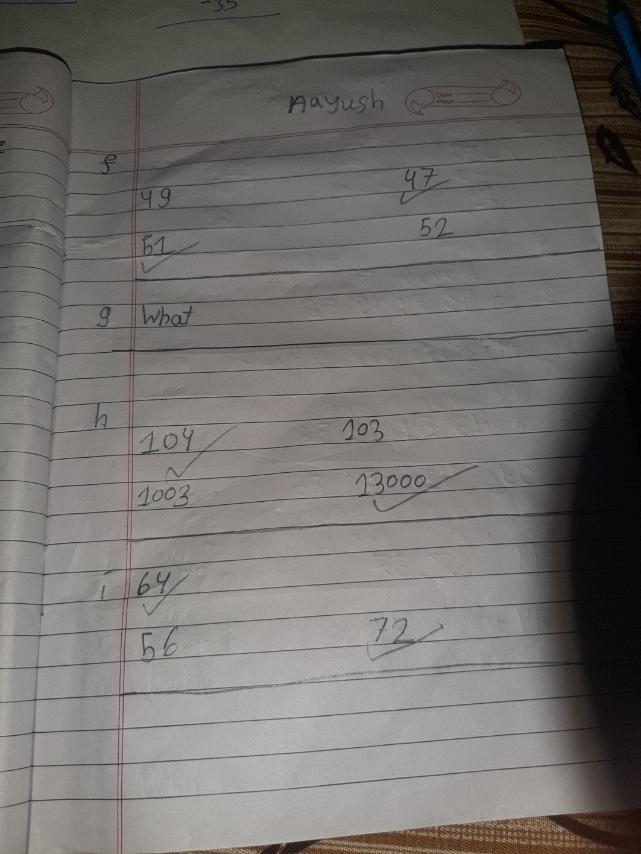 -35
Aayush
Date
Page
f
49 47
51 52
g What
h
104 103
1003 13000
i 64
56 72